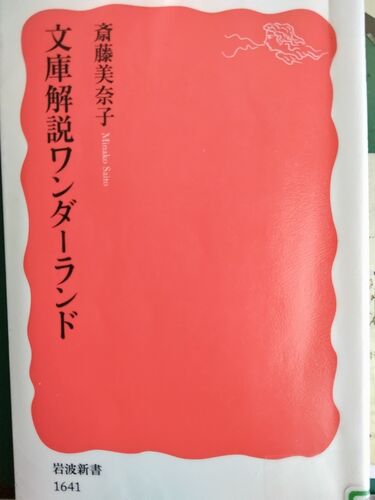 斎藤美奈子
Minako Saito
文庫解説ワンダーランド
岩波新書
1641